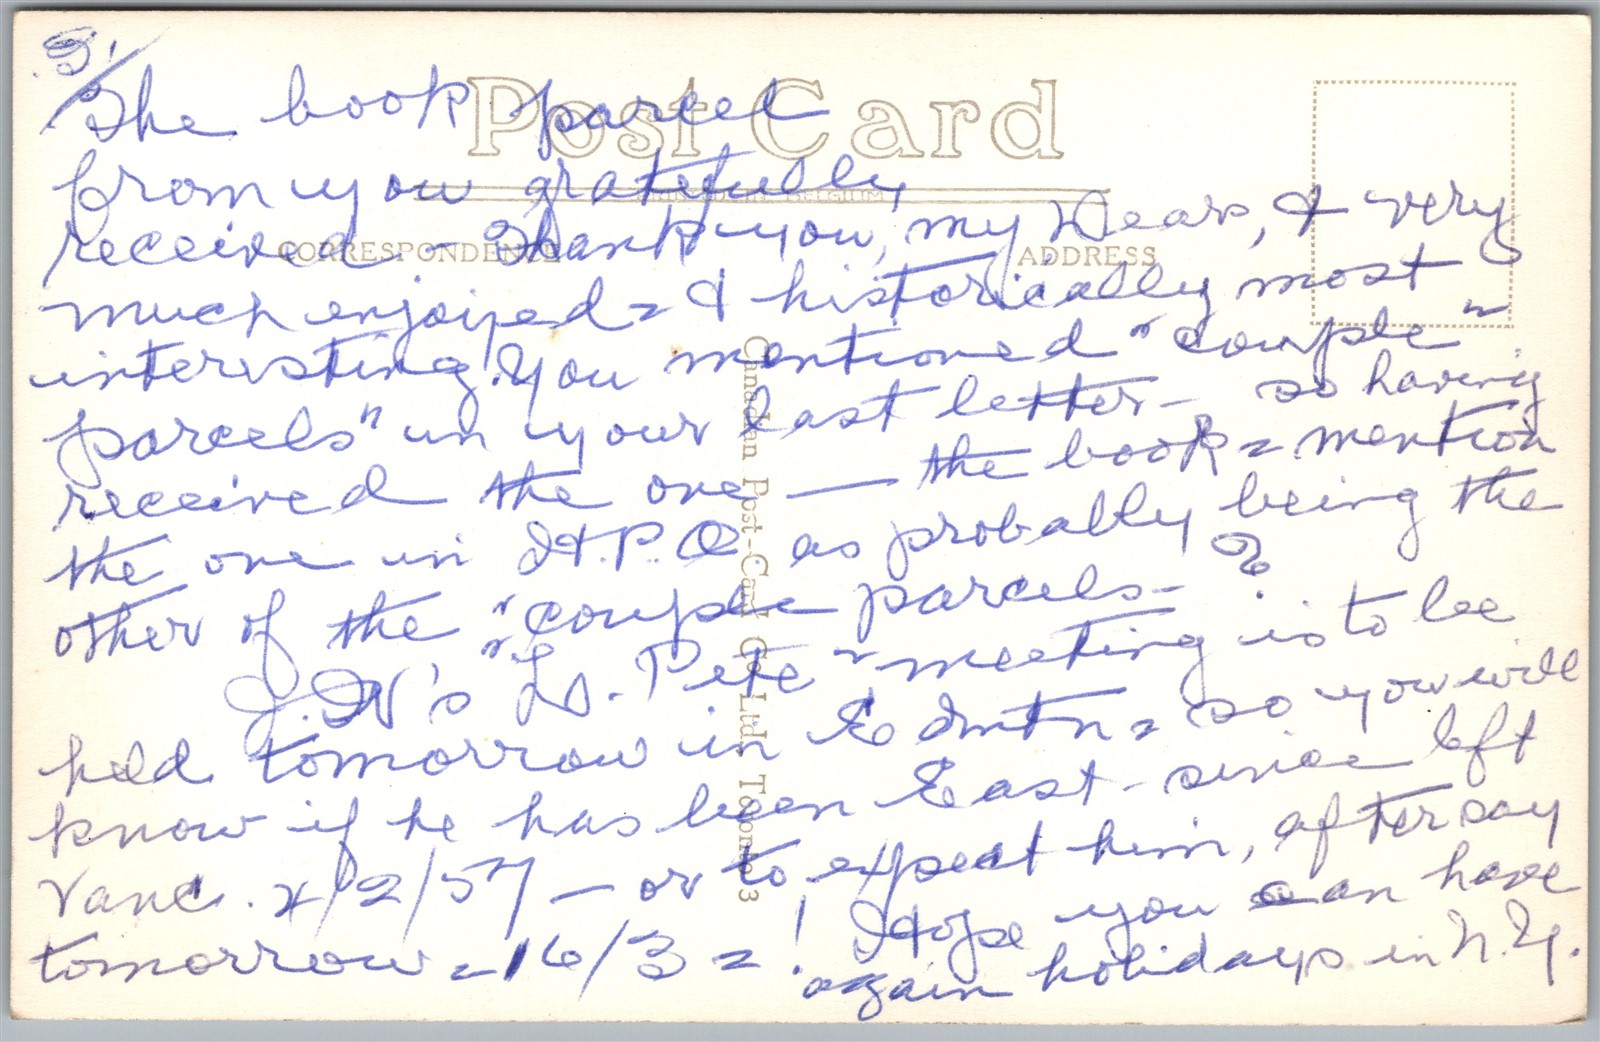 3/
Post Card
The book parcel
from you gratefully
received - Thank you, my Dears, & very
CORRESPONDENCE
ADDRESS
much enjoyed - & historically most
interesting. You mentioned "couple
parcels" in your last letter - so having
received the one — the book - mention
the one in H.P.O. as probably being the
other of the "couple parcels - ?
J.W's "L. Pete" meeting is to be
held tomorrow in Edmtn - so you will
know if he has been East - since left
Vanc. 4/2/57 - or to expect him, after say
tomorrow - 16/3 - ! Hope you can have
again holidays in N.Y.
Canadian Post-Card Co. Ltd. Toronto 3